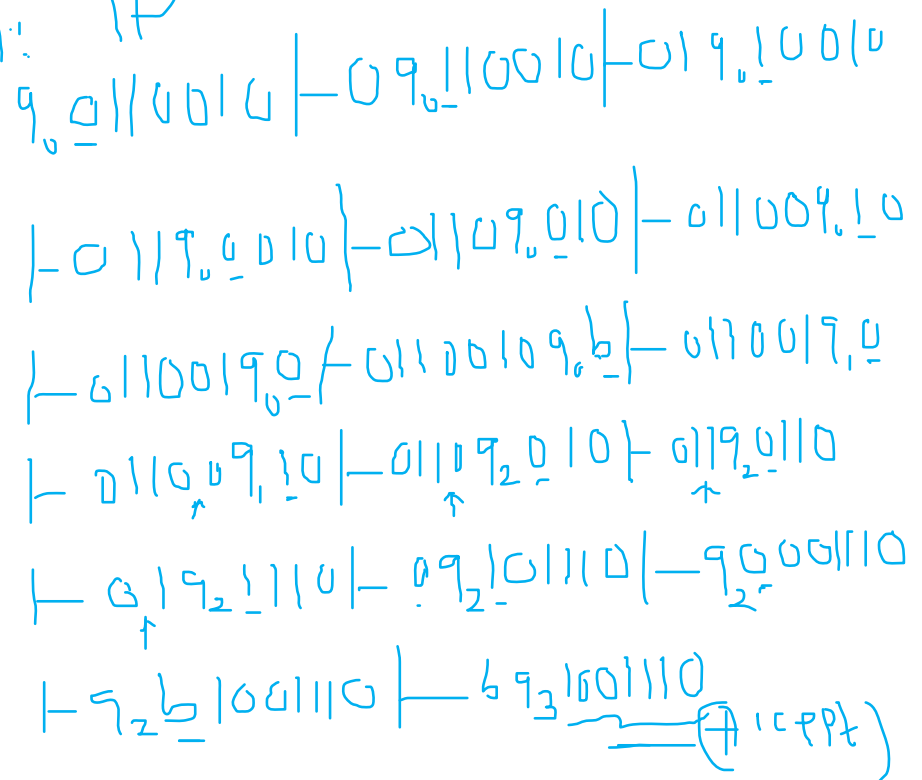 q₀0110010 ⊢ 0q₀110010 ⊢ 01q₀10010
⊢ 011q₀0010 ⊢ 0110q₀010 ⊢ 01100q₀10
⊢ 011001q₀0 ⊢ 0110010q₀b ⊢ 011001q₁0
⊢ 01100q₁10 ⊢ 0110q₂010 ⊢ 011q₂0110
⊢ 01q₂1110 ⊢ 0q₂101110 ⊢ q₂0001110
⊢ q₂b1001110 ⊢ bq₃1001110